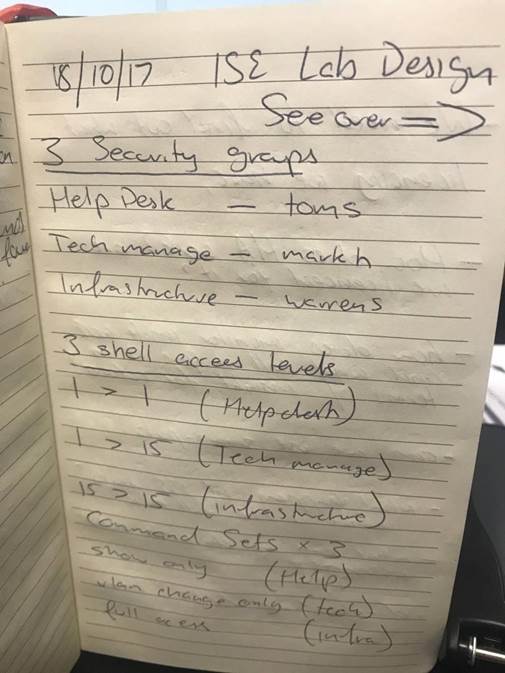 18/10/17 ISE Lab Design
See over =>
3 Security groups
Help Desk - toms
Tech manage - markh
Infrastructure - warrens
3 shell access levels
1 > 1 (Helpdesk)
1 > 15 (Tech manage)
15 > 15 (infrastructure)
Command Sets x 3
show only (Help)
vlan change only (tech)
full access (infra)